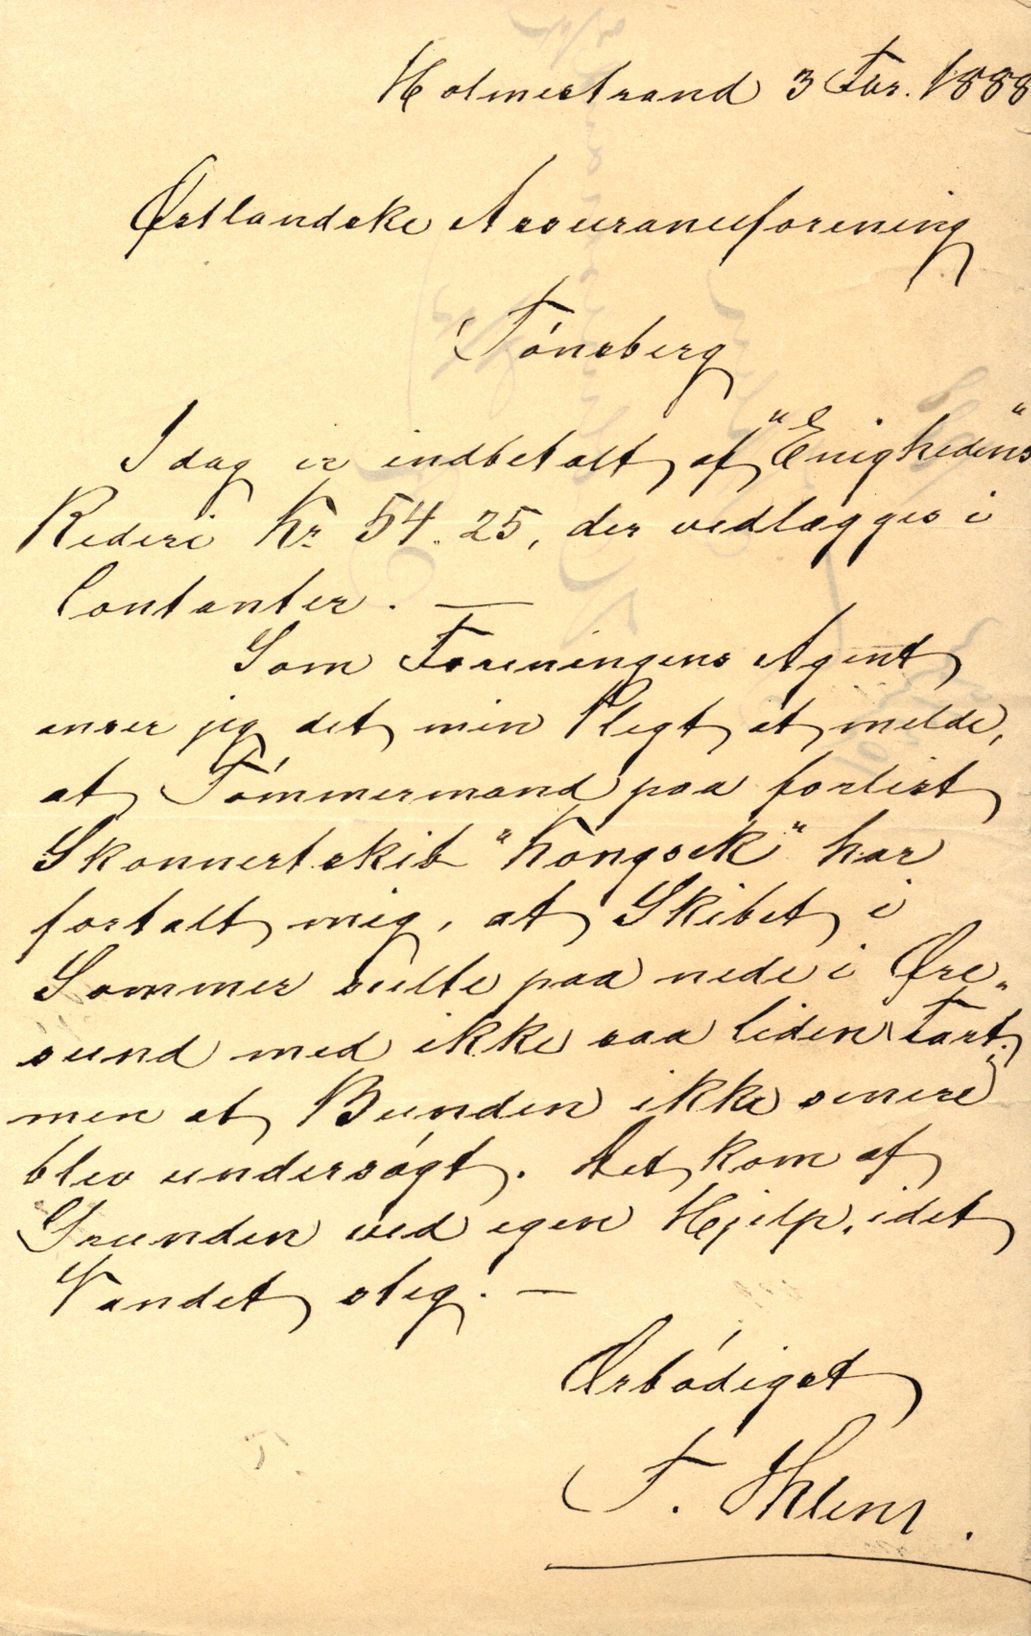 Holmestrand 3 Fbr. 1888
Østlandske Assuranceforening
Tónsberg
I dag er indbetalt af "Enighedens"
Rederi Kr. 54.25, der vedlægges i
Contanter. —
Som Foreningens Agent
anser jeg det min Pligt at melde,
at Tómmermand paa forlist
Skonnertskib "Kongsek" har
fortalt mig, at Skibet i
Sommer stilte paa nede i Øre„
sund med ikke saa liden Fart,
men at Bunden ikke senere
blev undersógt. Det kom af
Grunden ved egen Hjelp, idet
Vandet steg. —
Ærbódigst